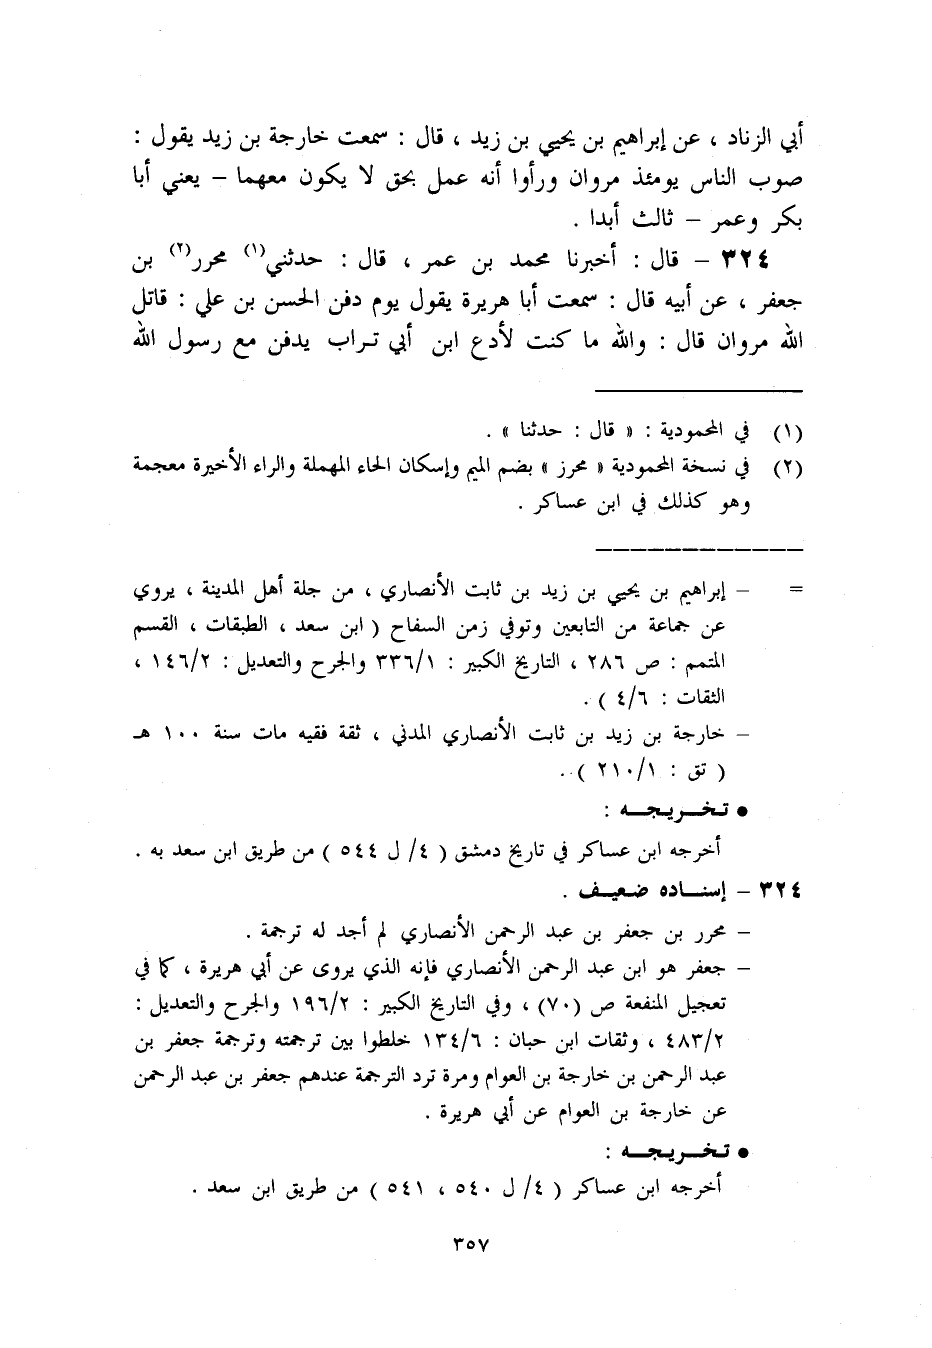 أبي الزناد ، عن إبراهيم بن يحيي بن زيد ، قال : سمعت خارجة بن زيد يقول :
صوب الناس يومئذ مروان ورأوا أنه عمل بحق لا يكون معهما – يعني أبا
بكر وعمر – ثالث أبدا .
٣٢٤ – قال : أخبرنا محمد بن عمر ، قال : حدثني(١) محرر(٢) بن
جعفر ، عن أبيه قال : سمعت أبا هريرة يقول يوم دفن الحسن بن علي : قاتل
الله مروان قال : والله ما كنت لأدع ابن أبي تراب يدفن مع رسول الله
(١) في المحمودية : « قال : حدثنا » .
(٢) في نسخة المحمودية « محرز » بضم الميم وإسكان الحاء المهملة والراء الأخيرة معجمة
وهو كذلك في ابن عساكر .
= – إبراهيم بن يحيي بن زيد بن ثابت الأنصاري ، من جلة أهل المدينة ، يروي
عن جماعة من التابعين وتوفي زمن السفاح ( ابن سعد ، الطبقات ، القسم
المتمم : ص ٢٨٦ ، التاريخ الكبير : ٣٣٦/١ والجرح والتعديل : ١٤٦/٢ ،
الثقات : ٤/٦ ) .
– خارجة بن زيد بن ثابت الأنصاري المدني ، ثقة فقيه مات سنة ١٠٠ هـ
( تق : ٢١٠/١ ) .
• تـخــريـجــه :
أخرجه ابن عساكر في تاريخ دمشق ( ٤/ ل ٥٤٤ ) من طريق ابن سعد به .
٣٢٤ – إسنــاده ضعيــف .
– محرر بن جعفر بن عبد الرحمن الأنصاري لم أجد له ترجمة .
– جعفر هو ابن عبد الرحمن الأنصاري فإنه الذي يروى عن أبي هريرة ، كما في
تعجيل المنفعة ص (٧٠) ، وفي التاريخ الكبير : ١٩٦/٢ والجرح والتعديل :
٤٨٣/٢ ، وثقات ابن حبان : ١٣٤/٦ خلطوا بين ترجمته وترجمة جعفر بن
عبد الرحمن بن خارجة بن العوام ومرة ترد الترجمة عندهم جعفر بن عبد الرحمن
عن خارجة بن العوام عن أبي هريرة .
• تـخــريـجــه :
أخرجه ابن عساكر ( ٤/ ل ٥٤٠ ، ٥٤١ ) من طريق ابن سعد .
٣٥٧